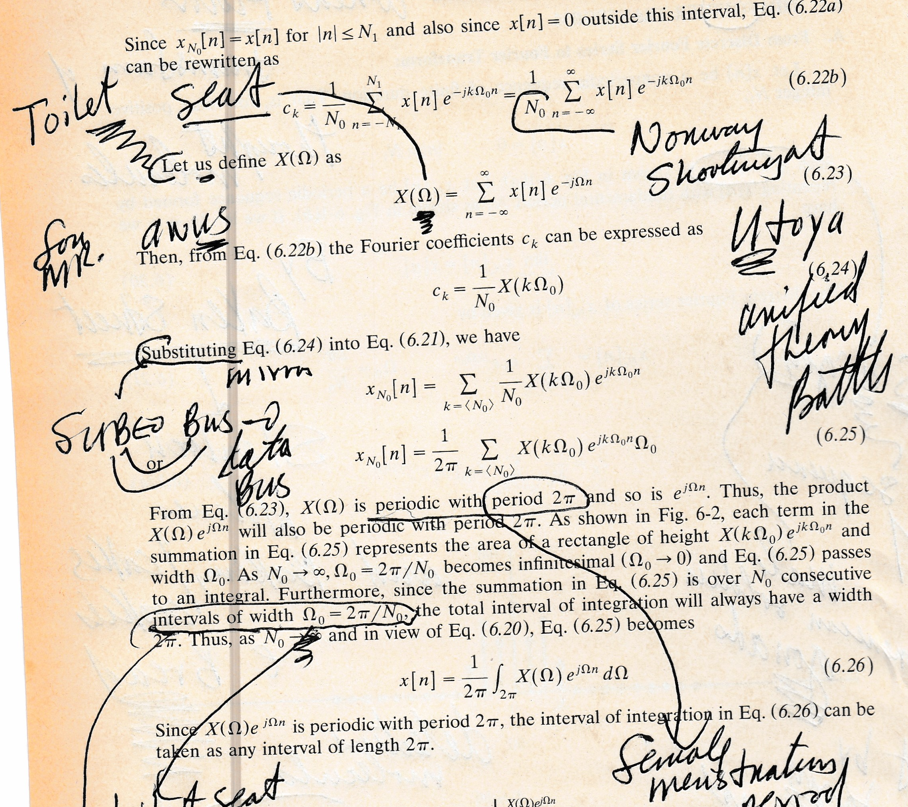 Since x_{N_0}[n] = x[n] for |n| ≤ N_1 and also since x[n] = 0 outside this interval, Eq. (6.22a)
can be rewritten as
Toilet seat
c_k = \frac{1}{N_0} \sum_{n=-N_1}^{N_1} x[n] e^{-jkΩ_0 n} = \frac{1}{N_0} \sum_{n=-∞}^{∞} x[n] e^{-jkΩ_0 n} (6.22b)
Norway
Let us define X(Ω) as
X(Ω) = \sum_{n=-∞}^{∞} x[n] e^{-jΩn} (6.23)
Utoya
for MR.
Then, from Eq. (6.22b) the Fourier coefficients c_k can be expressed as
c_k = \frac{1}{N_0} X(kΩ_0) (6.24)
unified
theory
Battls
Substituting Eq. (6.24) into Eq. (6.21), we have
x_{N_0}[n] = \sum_{k=⟨N_0⟩} \frac{1}{N_0} X(kΩ_0) e^{jkΩ_0 n}
Bus
or
data
Bus
x_{N_0}[n] = \frac{1}{2π} \sum_{k=⟨N_0⟩} X(kΩ_0) e^{jkΩ_0 n} Ω_0 (6.25)
From Eq. (6.23), X(Ω) is periodic with period 2π and so is e^{jΩn}. Thus, the product
X(Ω) e^{jΩn} will also be periodic with period 2π. As shown in Fig. 6-2, each term in the
summation in Eq. (6.25) represents the area of a rectangle of height X(kΩ_0) e^{jkΩ_0 n} and
width Ω_0. As N_0 → ∞, Ω_0 = 2π/N_0 becomes infinitesimal (Ω_0 → 0) and Eq. (6.25) passes
to an integral. Furthermore, since the summation in Eq. (6.25) is over N_0 consecutive
intervals of width Ω_0 = 2π/N_0, the total interval of integration will always have a width
2π. Thus, as N_0 → ∞ and in view of Eq. (6.20), Eq. (6.25) becomes
x[n] = \frac{1}{2π} \int_{2π} X(Ω) e^{jΩn} dΩ (6.26)
Since X(Ω) e^{jΩn} is periodic with period 2π, the interval of integration in Eq. (6.26) can be
taken as any interval of length 2π.
seat
period